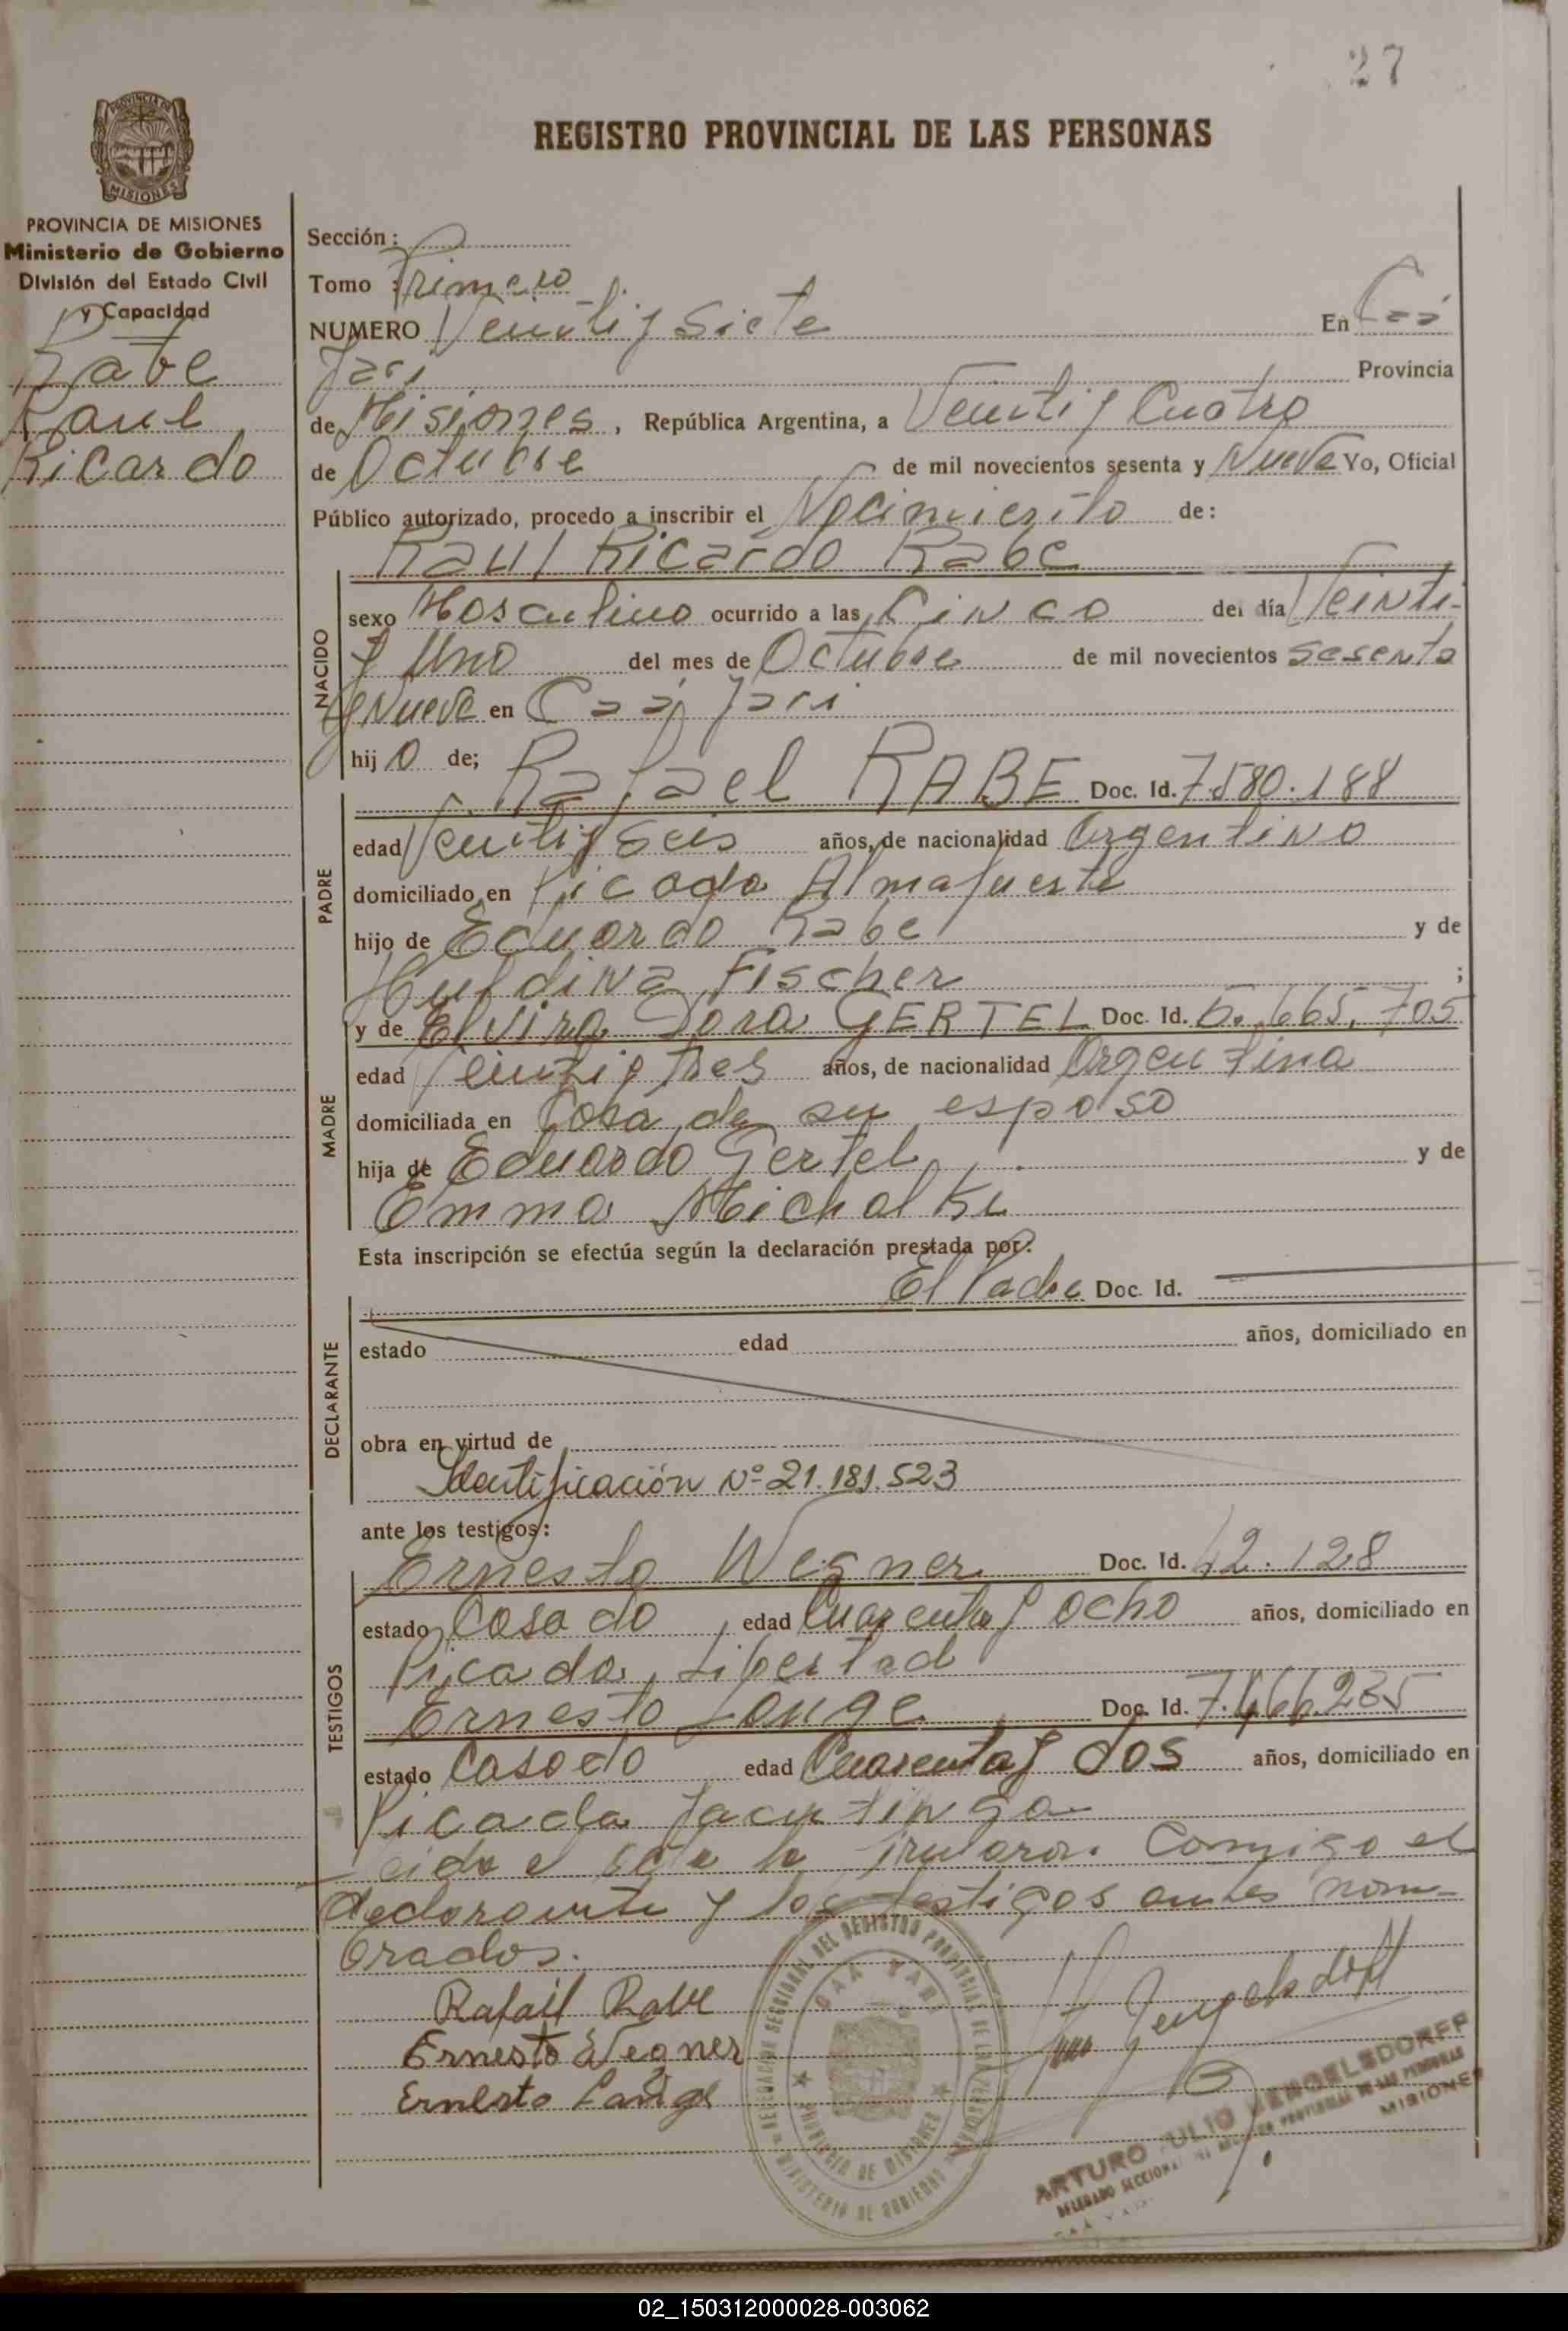 27
REGISTRO PROVINCIAL DE LAS PERSONAS
PROVINCIA DE MISIONES
Ministerio de Gobierno
División del Estado Civil
y Capacidad
Rabe
Raul
Ricardo
Sección:
Tomo : Primero
NUMERO Veinti y Siete En Caá
Yari Provincia
de Misiones, República Argentina, a Veinti y Cuatro
de Octubre de mil novecientos sesenta y Nueve Yo, Oficial
Público autorizado, procedo a inscribir el Nacimiento de:
Raul Ricardo Rabe
NACIDO
sexo Masculino ocurrido a las Cinco del día Veinti-
y Uno del mes de Octubre de mil novecientos Sesenta
y Nueve en Caá Yari
hijo de;
PADRE
Rafael RABE Doc. Id. 7.580.188
edad Veinti y Seis años, de nacionalidad Argentino
domiciliado en Picada Almafuerte
hijo de Eduardo Rabe y de
Huldina Fischer ;
MADRE
y de Elvira Dora GERTEL Doc. Id. 5.665.705
edad Veinti y Tres años, de nacionalidad Argentina
domiciliada en Casa de su esposo
hija de Eduardo Gertel y de
Emma Michalki
Esta inscripción se efectúa según la declaración prestada por:
El Padre Doc. Id.
DECLARANTE
estado edad años, domiciliado en
obra en virtud de
Identificación Nº 21.181.523
ante los testigos:
TESTIGOS
Ernesto Wegner Doc. Id. 42.128
estado Casado edad Cuarenta y Ocho años, domiciliado en
Picada Libertad
Ernesto Lange Doc. Id. 7.466.235
estado Casado edad Cuarenta y dos años, domiciliado en
Picada Jacutinga
Leida el acta la firmaron Comigo el
declarante y los testigos antes nom-
brados.
Rafael Rabe
Ernesto Wegner
Ernesto Lange
DELEGACION SECCIONAL DEL REGISTRO PROVINCIAL DE LAS PERSONAS
CAA YARI
PROVINCIA DE MISIONES
MINISTERIO DE GOBIERNO
ARTURO JULIO HENGELSDORFF
DELEGADO SECCIONAL DEL REGISTRO PROVINCIAL DE LAS PERSONAS
CAA YARI MISIONES
02_150312000028-003062